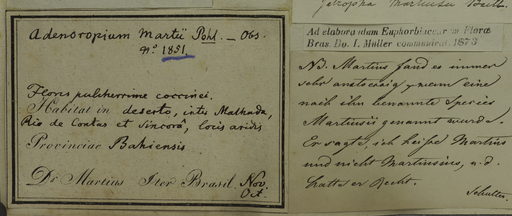 Adenoropium Martii Pohl. — Obs.
No 1851.
Flores pulcherrime coccinei.
Habitat in deserto, inter Malhada,
Rio de Contas et Sincorá, locis aridis
Provinciae Bahiensis
Dr Martius Iter Brasil. Nov.
Oct.
Jatropha Martiusii Baill.
Ad elaborandum Euphorbiaceae in Florae
Bras. Dr. J. Müller communicat. 1873
NB. Martius fand es immer
sehr anstoessig, wenn eine
nach ihm benannte Species
Martiusii genannt wurde.
Er sagte, ich heisse Martius
und nicht Martiusius, u. d.
hatte er Recht.